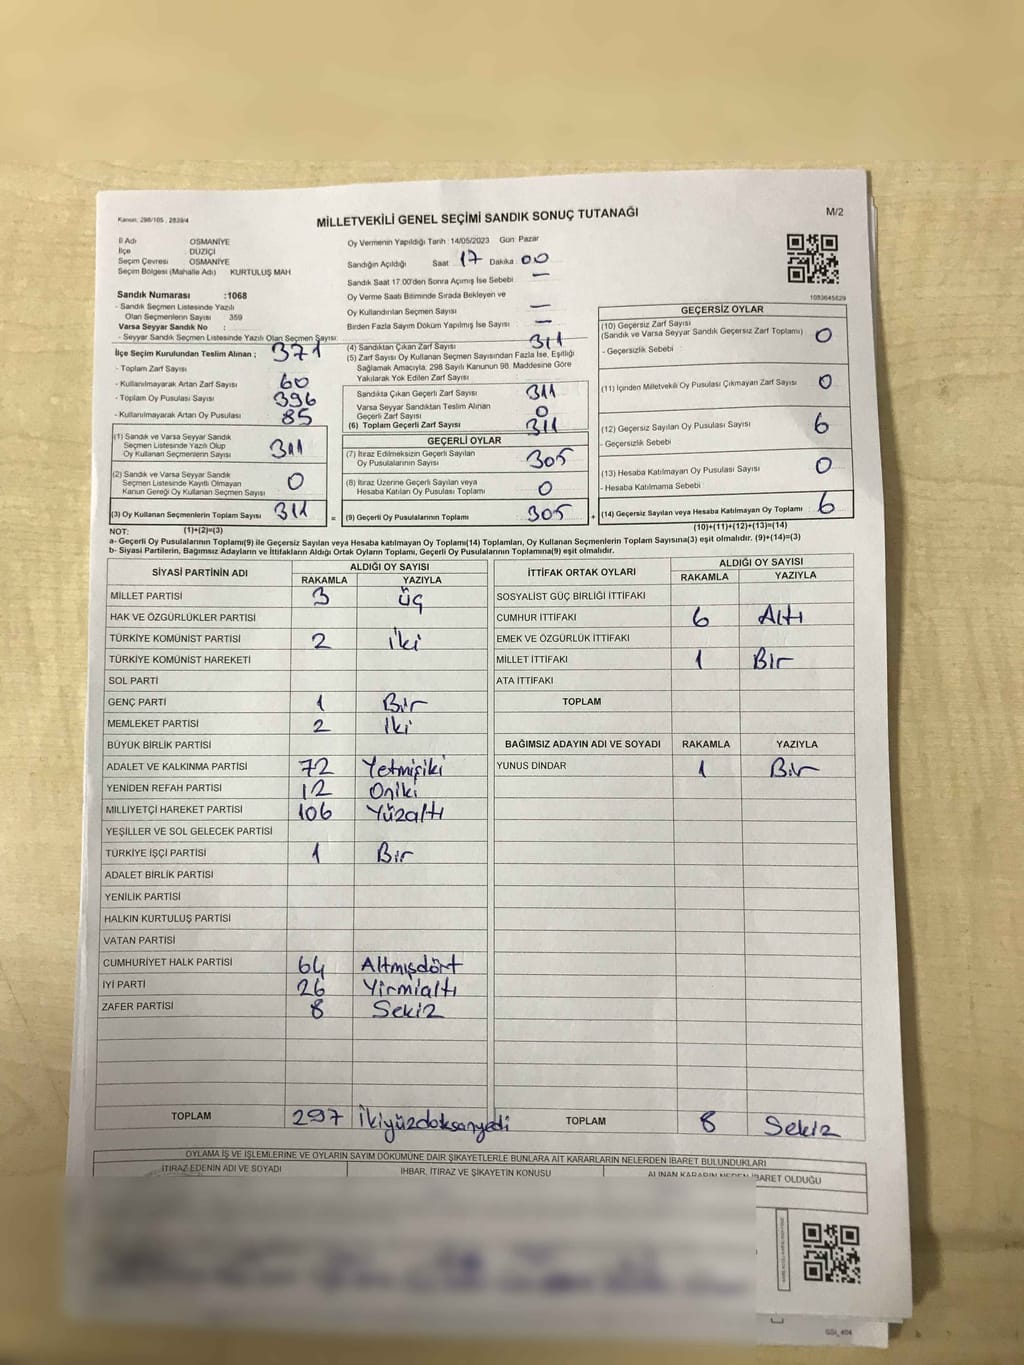 Kanun: 298/105 , 2839/4
MİLLETVEKİLİ GENEL SEÇİMİ SANDIK SONUÇ TUTANAĞI
M/2
İl Adı OSMANİYE
İlçe DÜZİÇİ
Seçim Çevresi OSMANİYE
Seçim Bölgesi (Mahalle Adı) KURTULUŞ MAH.
Sandık Numarası :1068
- Sandık Seçmen Listesinde Yazılı
Olan Seçmenlerin Sayısı 359
Varsa Seyyar Sandık No :
- Seyyar Sandık Seçmen Listesinde Yazılı Olan Seçmen Sayısı:
İlçe Seçim Kurulundan Teslim Alınan ; 371
- Toplam Zarf Sayısı
- Kullanılmayarak Artan Zarf Sayısı 60
- Toplam Oy Pusulası Sayısı 396
- Kullanılmayarak Artan Oy Pusulası 85
(1) Sandık ve Varsa Seyyar Sandık
Seçmen Listesinde Yazılı Olup
Oy Kullanan Seçmenlerin Sayısı 311
(2) Sandık ve Varsa Seyyar Sandık
Seçmen Listesinde Kayıtlı Olmayan
Kanun Gereği Oy Kullanan Seçmen Sayısı 0
(3) Oy Kullanan Seçmenlerin Toplam Sayısı 311
(1)+(2)=(3)
Oy Vermenin Yapıldığı Tarih :14/05/2023 Gün: Pazar
Sandığın Açıldığı Saat 17 Dakika 00
Sandık Saat 17:00'den Sonra Açımış İse Sebebi —
Oy Verme Saati Bitiminde Sırada Bekleyen ve
Oy Kullandırılan Seçmen Sayısı —
Birden Fazla Sayım Döküm Yapılmış İse Sayısı —
(4) Sandıktan Çıkan Zarf Sayısı 311
(5) Zarf Sayısı Oy Kullanan Seçmen Sayısından Fazla İse, Eşitliği
Sağlamak Amacıyla, 298 Sayılı Kanunun 98. Maddesine Göre
Yakılarak Yok Edilen Zarf Sayısı
Sandıkta Çıkan Geçerli Zarf Sayısı 311
Varsa Seyyar Sandıktan Teslim Alınan
Geçerli Zarf Sayısı 0
(6) Toplam Geçerli Zarf Sayısı 311
GEÇERLİ OYLAR
(7) İtiraz Edilmeksizin Geçerli Sayılan
Oy Pusulalarının Sayısı 305
(8) İtiraz Üzerine Geçerli Sayılan veya
Hesaba Katılan Oy Pusulası Toplamı 0
= (9) Geçerli Oy Pusulalarının Toplamı 305 +
1083645629
GEÇERSİZ OYLAR
(10) Geçersiz Zarf Sayısı
(Sandık ve Varsa Seyyar Sandık Geçersiz Zarf Toplamı) 0
- Geçersizlik Sebebi :
(11) İçinden Milletvekili Oy Pusulası Çıkmayan Zarf Sayısı 0
(12) Geçersiz Sayılan Oy Pusulası Sayısı 6
- Geçersizlik Sebebi :
(13) Hesaba Katılmayan Oy Pusulası Sayısı 0
- Hesaba Katılmama Sebebi :
(14) Geçersiz Sayılan veya Hesaba Katılmayan Oy Toplamı 6
(10)+(11)+(12)+(13)=(14)
NOT:
a- Geçerli Oy Pusulalarının Toplamı(9) ile Geçersiz Sayılan veya Hesaba katılmayan Oy Toplamı(14) Toplamları, Oy Kullanan Seçmenlerin Toplam Sayısına(3) eşit olmalıdır. (9)+(14)=(3)
b- Siyasi Partilerin, Bağımsız Adayların ve İttifakların Aldığı Ortak Oyların Toplamı, Geçerli Oy Pusulalarının Toplamına(9) eşit olmalıdır.
SİYASİ PARTİNİN ADI ALDIĞI OY SAYISI
RAKAMLA YAZIYLA
MİLLET PARTİSİ 3 üç
HAK VE ÖZGÜRLÜKLER PARTİSİ
TÜRKİYE KOMÜNİST PARTİSİ 2 iki
TÜRKİYE KOMÜNİST HAREKETİ
SOL PARTİ
GENÇ PARTİ 1 Bir
MEMLEKET PARTİSİ 2 iki
BÜYÜK BİRLİK PARTİSİ
ADALET VE KALKINMA PARTİSİ 72 Yetmişiki
YENİDEN REFAH PARTİSİ 12 Oniki
MİLLİYETÇİ HAREKET PARTİSİ 106 Yüzaltı
YEŞİLLER VE SOL GELECEK PARTİSİ
TÜRKİYE İŞÇİ PARTİSİ 1 Bir
ADALET BİRLİK PARTİSİ
YENİLİK PARTİSİ
HALKIN KURTULUŞ PARTİSİ
VATAN PARTİSİ
CUMHURİYET HALK PARTİSİ 64 Altmışdört
İYİ PARTİ 26 Yirmialtı
ZAFER PARTİSİ 8 Sekiz
TOPLAM 297 İkiyüzdoksanyedi
İTTİFAK ORTAK OYLARI ALDIĞI OY SAYISI
RAKAMLA YAZIYLA
SOSYALİST GÜÇ BİRLİĞİ İTTİFAKI
CUMHUR İTTİFAKI 6 Altı
EMEK VE ÖZGÜRLÜK İTTİFAKI
MİLLET İTTİFAKI 1 Bir
ATA İTTİFAKI
TOPLAM
BAĞIMSIZ ADAYIN ADI VE SOYADI RAKAMLA YAZIYLA
YUNUS DİNDAR 1 Bir
TOPLAM 8 Sekiz
OYLAMA İŞ VE İŞLEMLERİNE VE OYLARIN SAYIM DÖKÜMÜNE DAİR ŞİKAYETLERLE BUNLARA AİT KARARLARIN NELERDEN İBARET BULUNDUKLARI
İTİRAZ EDENİN ADI VE SOYADI İHBAR, İTİRAZ VE ŞİKAYETİN KONUSU ALINAN KARARIN NEDEN İBARET OLDUĞU
GSI_404